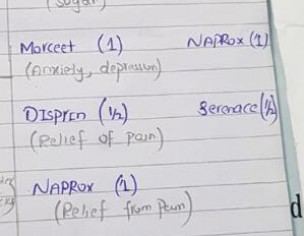 (sugar)
Morceet (1) NAPROX (1)
(Anxiety, depression)
DISPRIN (1/2) Serenace (1/2)
(Relief of Pain)
NAPROX (1)
(Relief from Pain)
d